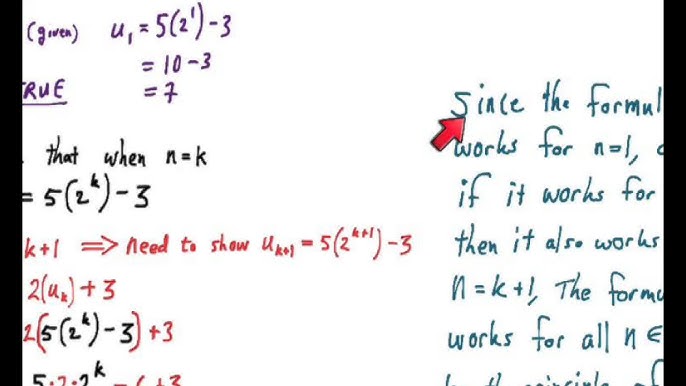 (given) u₁ = 5(2¹) - 3
= 10 - 3
TRUE = 7
that when n=k
= 5(2^k) - 3
k+1 ⇒ need to show u_{k+1} = 5(2^{k+1}) - 3
2(u_k) + 3
2(5(2^k) - 3) + 3
5·2·2^k - 6 + 3
Since the formul
works for n=1,
if it works for
then it also works
n=k+1, The formu
works for all n ∈
by the principle of